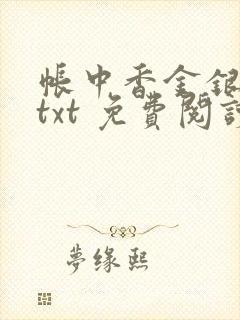 帳中香金銀
txt 免費閱讀
夢缘熙